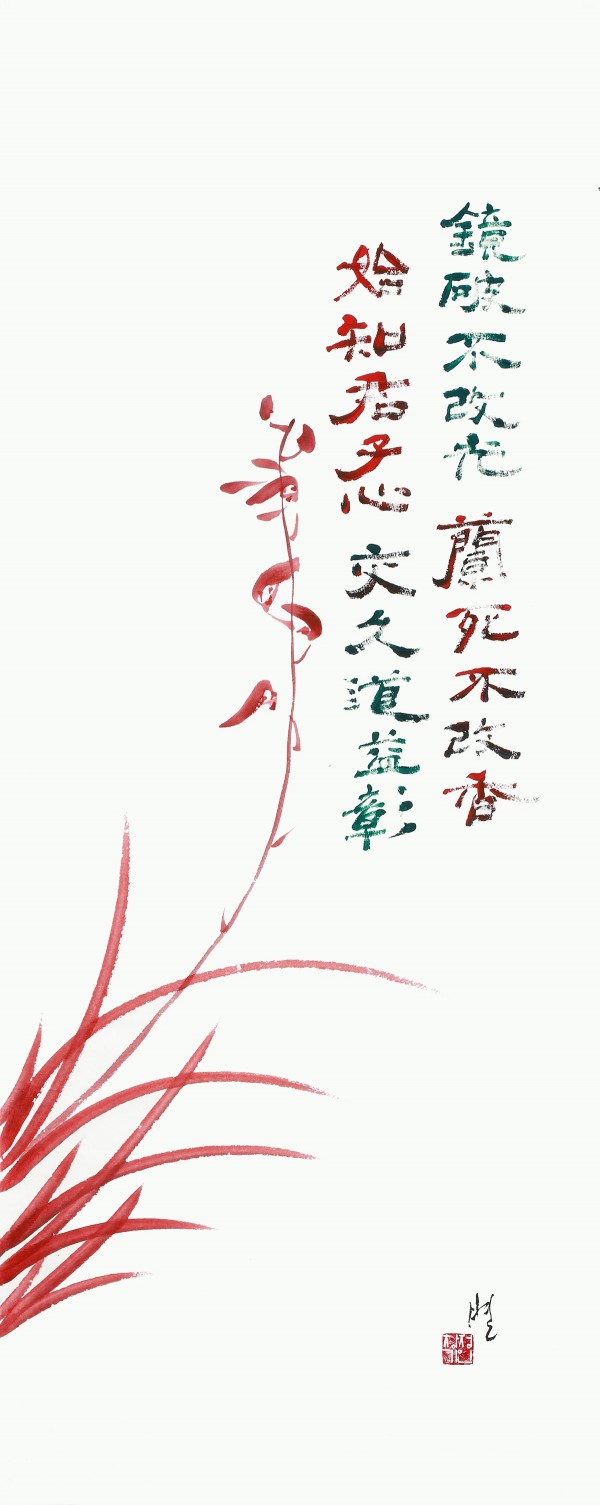 鏡破不改光 蘭死不改香
始知君子心 交久道益彰
별